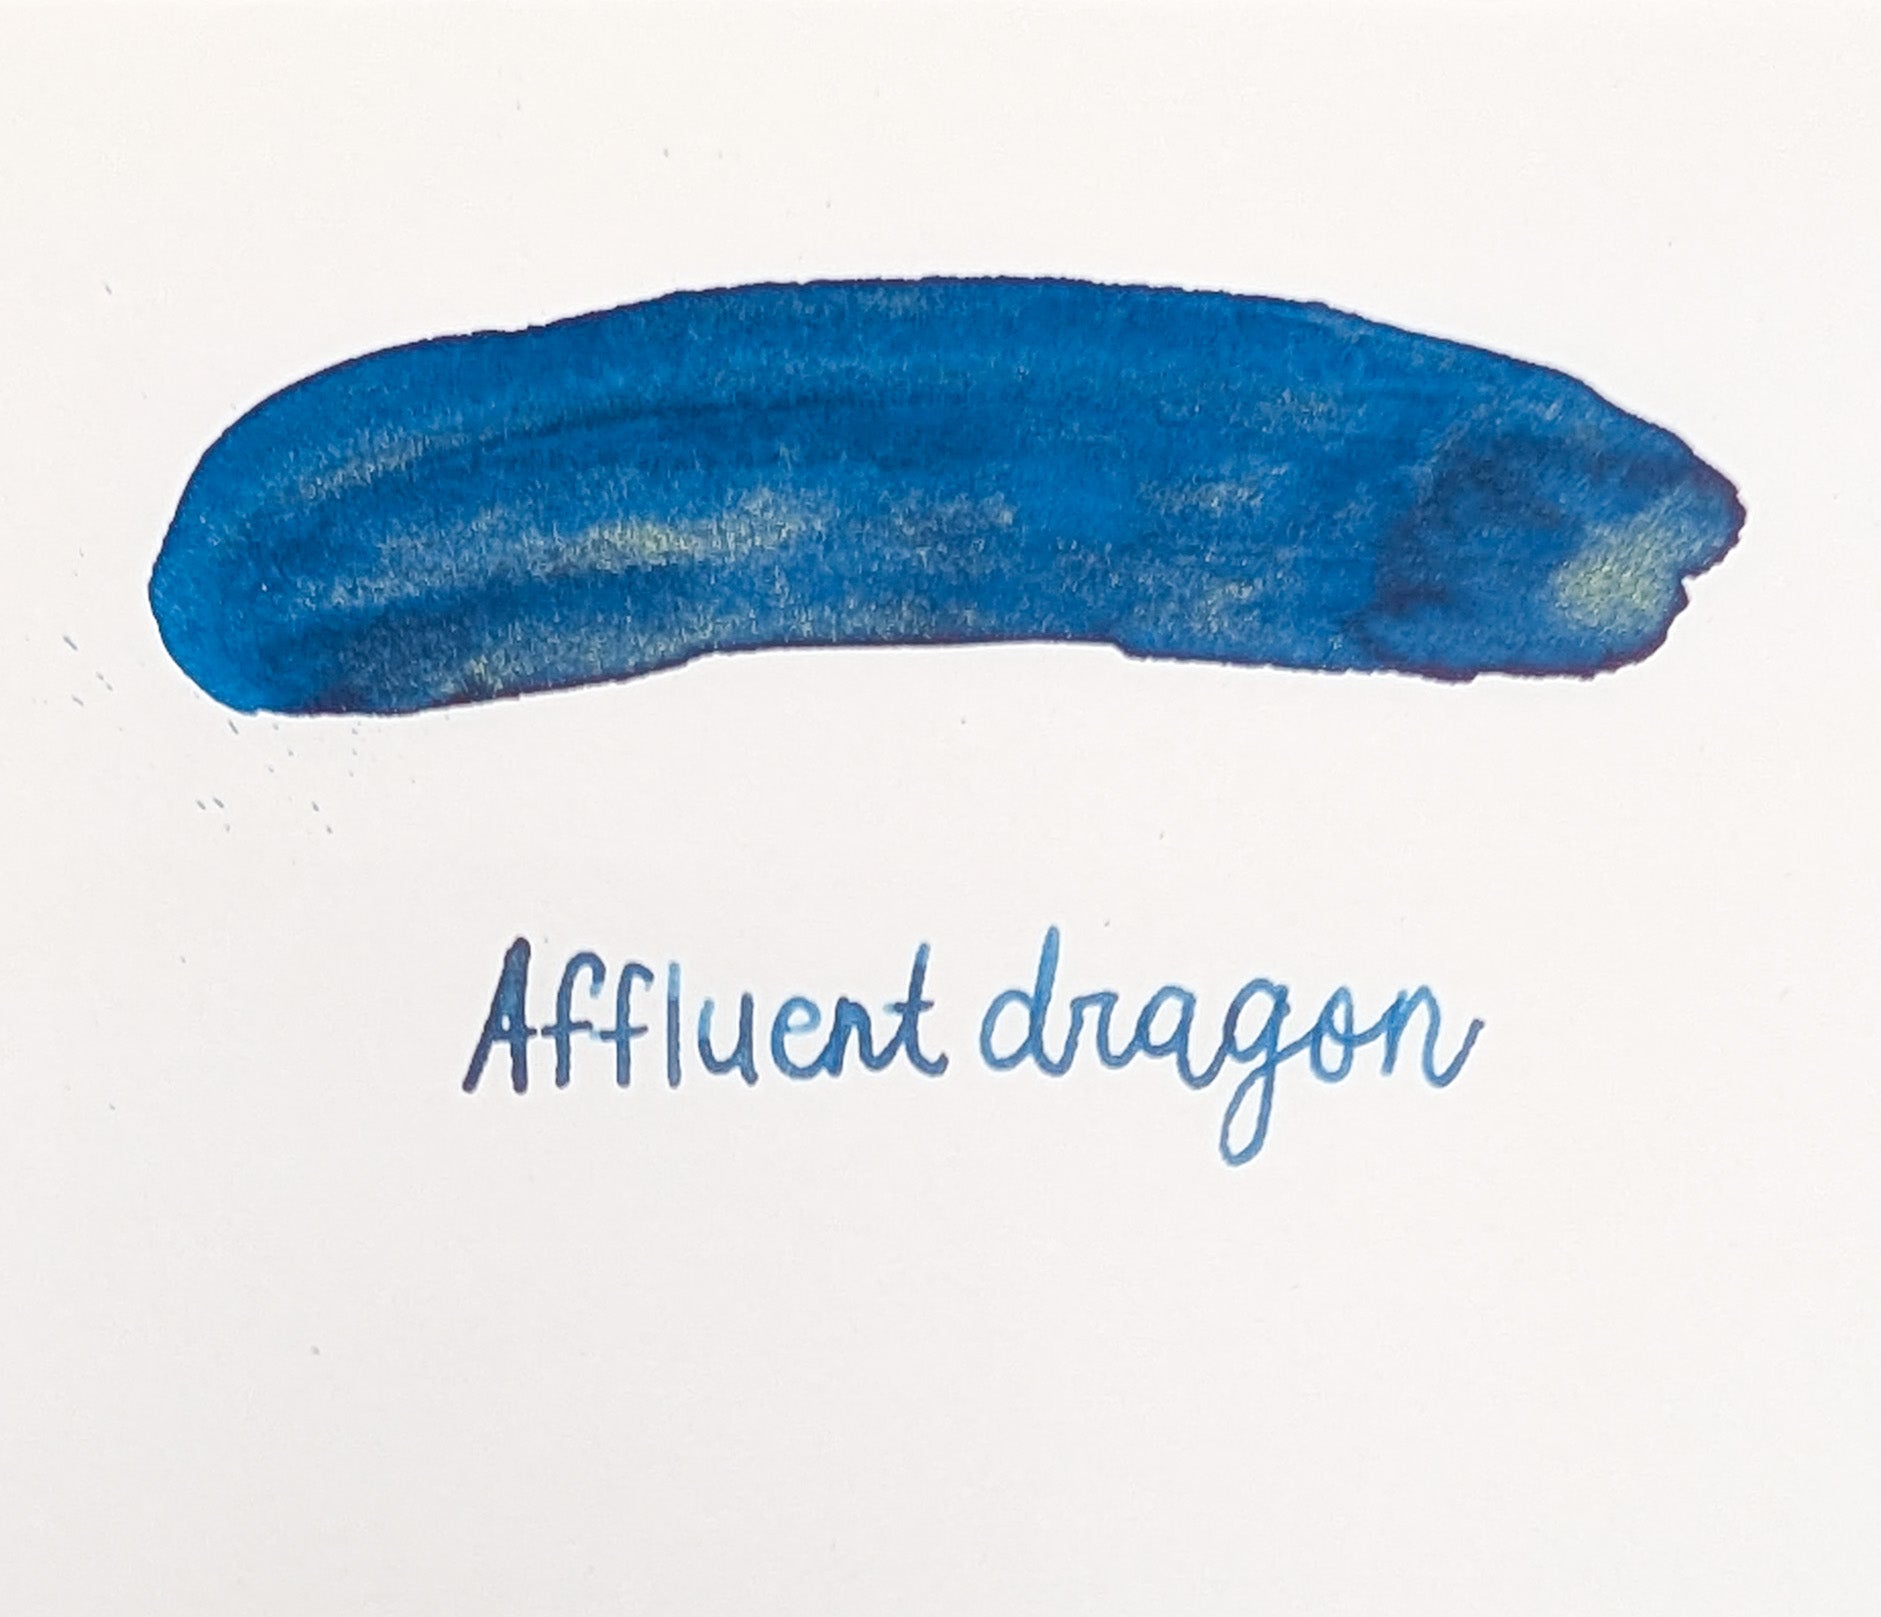 Affluent dragon